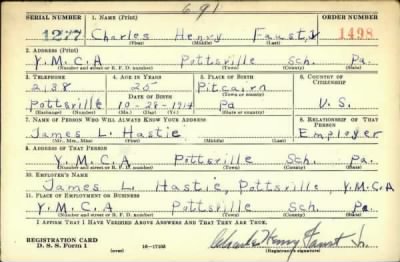 691
SERIAL NUMBER 1. NAME (Print) ORDER NUMBER
1277 Charles Henry Faust, Jr 1498
(First) (Middle) (Last)
2. ADDRESS (Print)
Y.M.C.A Pottsville Sch. Pa.
(Number and street or R. F. D. number) (Town) (County) (State)
3. TELEPHONE 4. AGE IN YEARS 5. PLACE OF BIRTH 6. COUNTRY OF CITIZENSHIP
2138 25 Pitcairn
(Town or county)
DATE OF BIRTH
Pottsville 10-28-1914 Pa U.S.
(Exchange) (Number) (Mo.) (Day) (Yr.) (State or country)
7. NAME OF PERSON WHO WILL ALWAYS KNOW YOUR ADDRESS 8. RELATIONSHIP OF THAT PERSON
James L. Hastie Employer
(Mr., Mrs., Miss) (First) (Middle) (Last)
9. ADDRESS OF THAT PERSON
Y.M.C.A Pottsville Sch. Pa.
(Number and street or R. F. D. number) (Town) (County) (State)
10. EMPLOYER'S NAME
James L. Hastie, Pottsville, Y.M.C.A
11. PLACE OF EMPLOYMENT OR BUSINESS
Y.M.C. Pottsville Sch. Pa.
(Number and street or R. F. D. number) (Town) (County) (State)
I AFFIRM THAT I HAVE VERIFIED ABOVE ANSWERS AND THAT THEY ARE TRUE.
REGISTRATION CARD
D. S. S. Form 1 (over) 16-17105 Charles Henry Faust Jr.
(Registrant's signature)